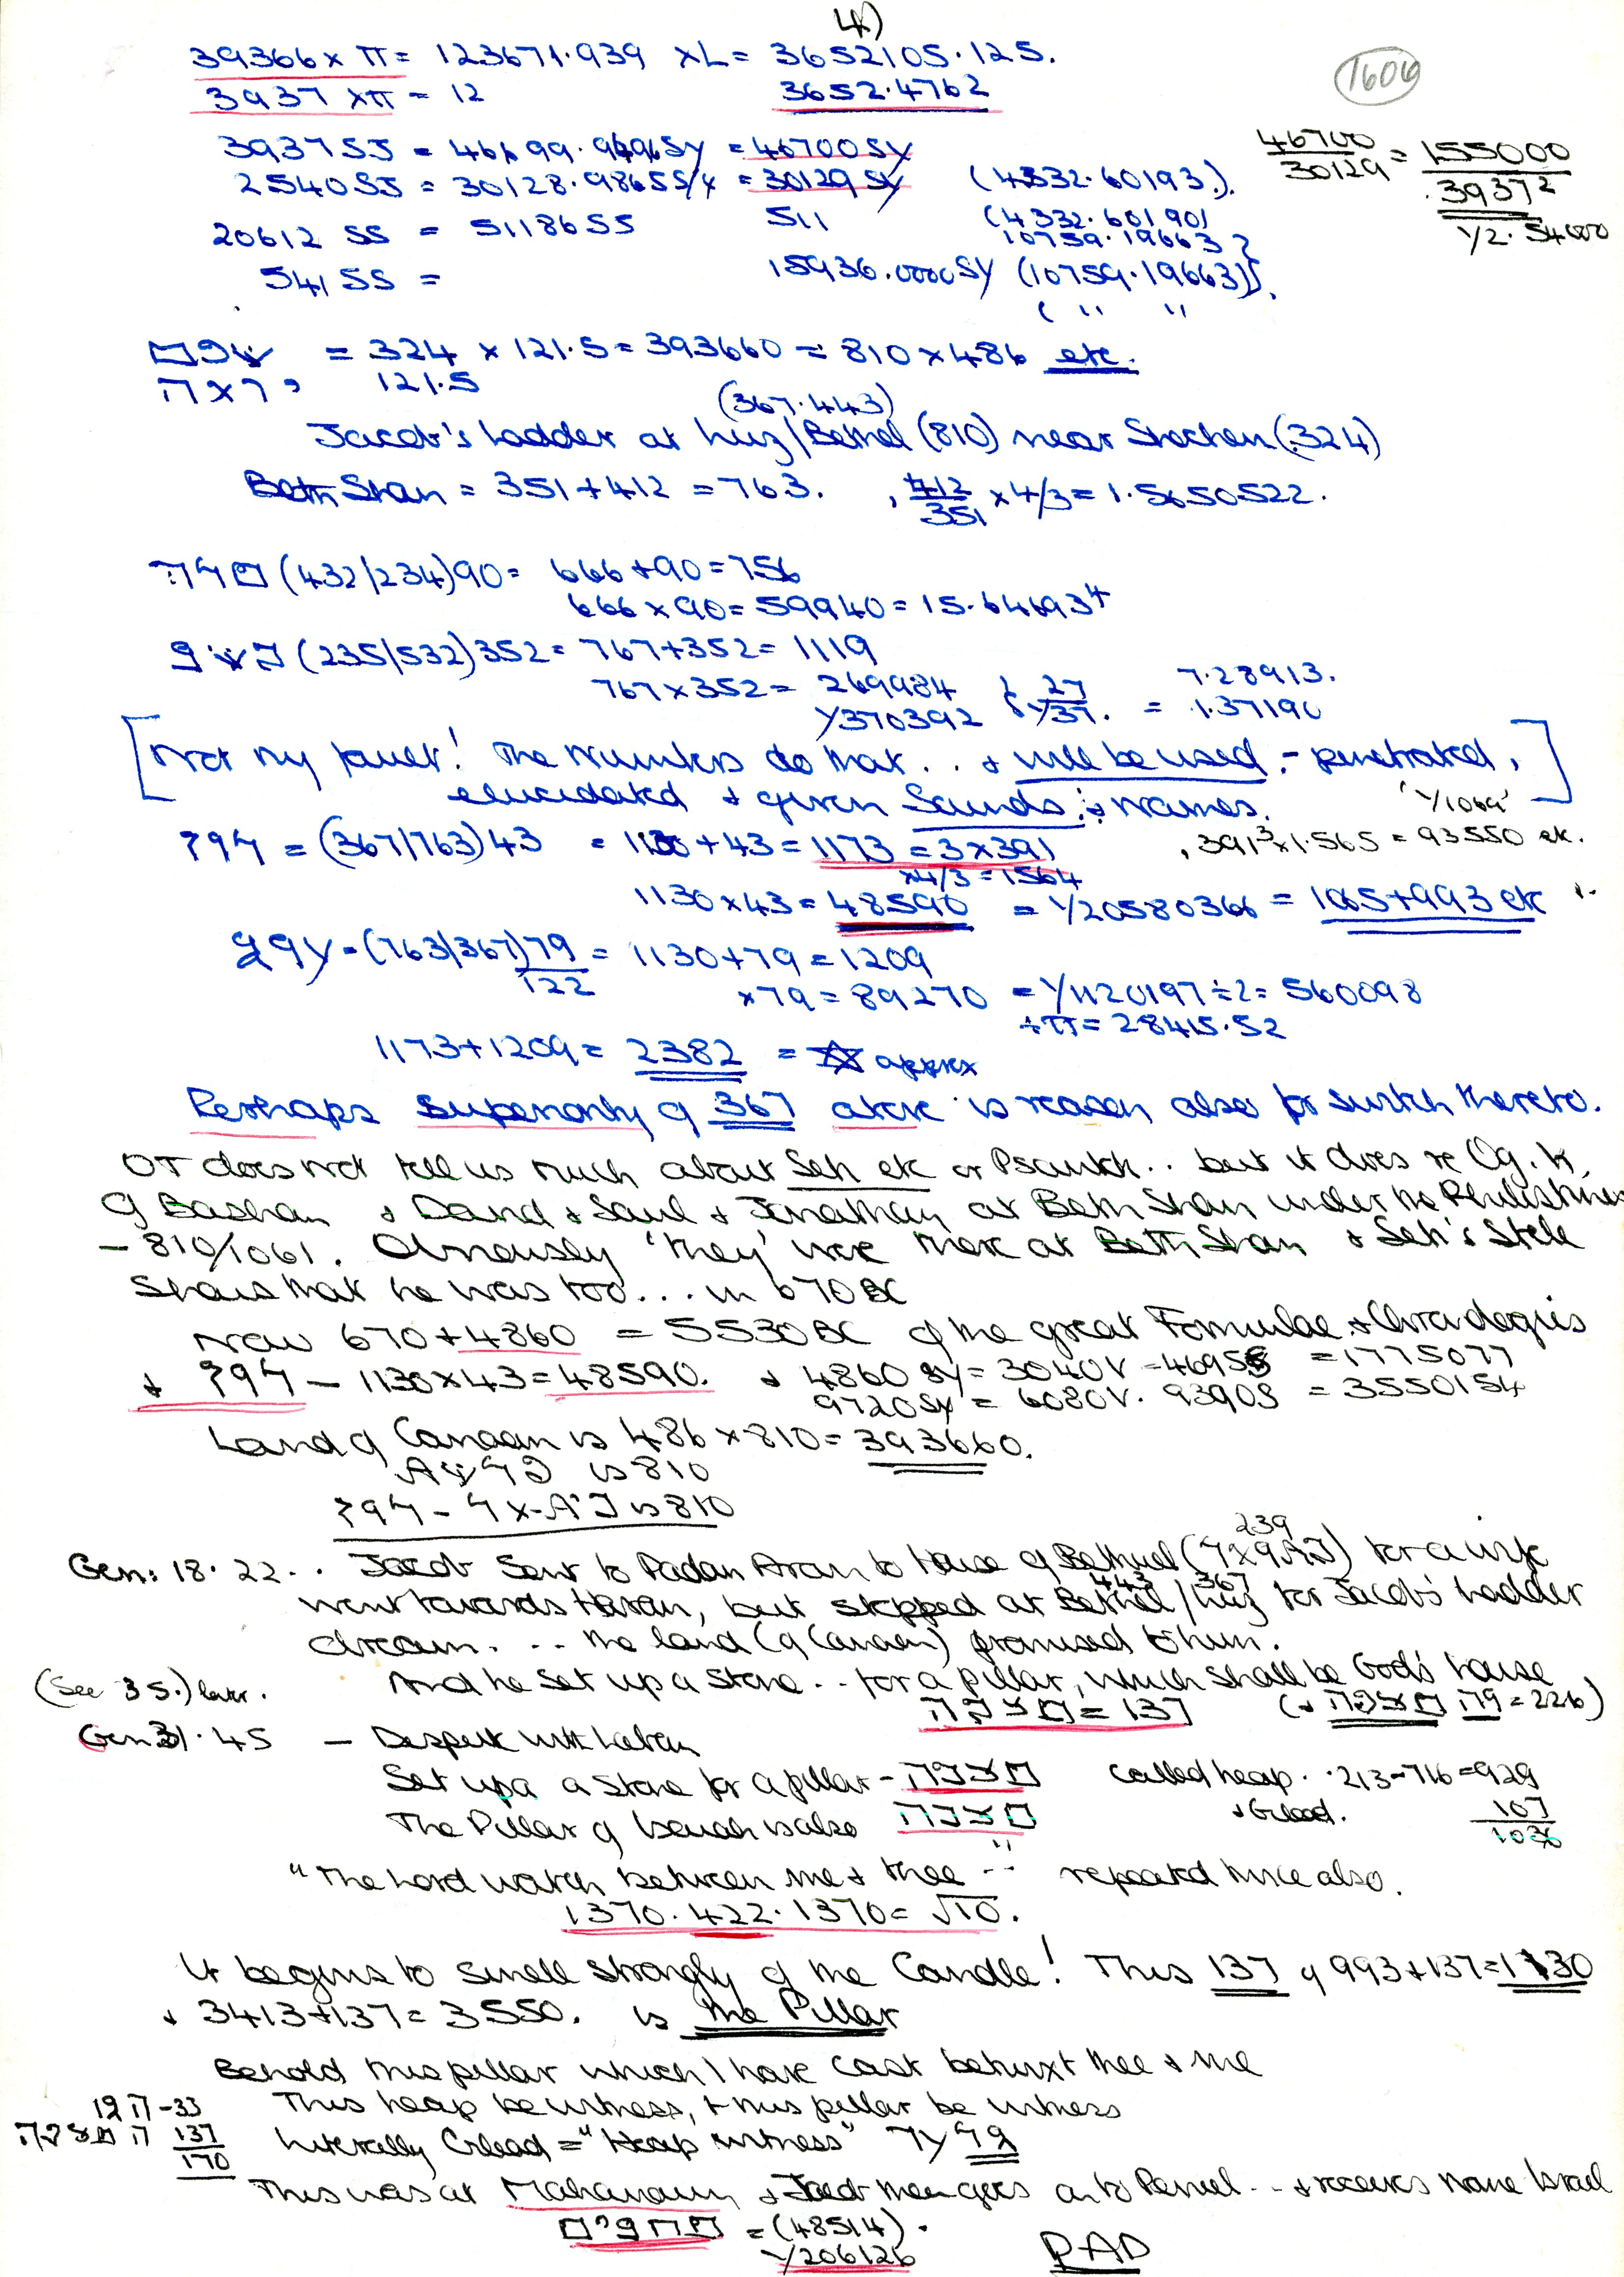 4)
39366 x π = 123671.939 x L = 3652105.125.
1606
3937 x π = 12 3652.4762
3937 SS = 46699.9496 Sy = 46700 Sy
46700/30129 = 155000/.3937²
1/2.54000
2540 SS = 30128.986 SS/Y = 30129 Sy (4332.60193).
20612 SS = 51186 SS 511 (4332.60190)
10759.19663 }
541 SS = 15936.0000 Sy (10759.19663)}.
( " "
= 324 x 121.5 = 393660 = 810 x 486 etc.
121.5
(367.443)
Jacob's ladder at Luz/Bethel (810) near Shechem (324)
Beth Shan = 351 + 412 = 763. , 412/351 x 4/3 = 1.5650522.
(432/234) 90 = 666 + 90 = 756
666 x 90 = 59940 = 15.646934
(235/532) 352 = 767 + 352 = 1119
767 x 352 = 269984 } 27 7.28913.
1/370392 } 1/37. = 1.37190
[Not my fault! The Numbers do that... + will be used, - penetrated,
elucidated + given Sounds, + names.]
'1/1069'
= (367/763) 43 = 1130 + 43 = 1173 = 3 x 391 , 391³ x 1.565 = 93550 etc.
x 4/3 = 1564
1130 x 43 = 48590 = 1/20580366 = 1065 + 993 etc
= (763/367) 79 = 1130 + 79 = 1209
122
x 79 = 89270 = 1/1120197 ÷ 2 = 560098
÷ π = 28415.52
1173 + 1209 = 2382 = ☆ approx
Perhaps Superiority of 367 above is reason also for switch thereto.
OT does not tell us much about Seti etc or Psamtik.. but it does re Og. K.
of Bashan + David + Saul + Jonathan at Beth Shan under the Philistines
- 810/1061. Obviously 'they' were there at Beth Shan + Seti's Stele
Shows that he was too... in 670 BC
Now 670 + 4860 = 5530 BC of the great Formulae + Chronologies
+ - 1130 x 43 = 48590. + 4860 Sy = 3040 V = 4695 S = 1775077
9720 Sy = 6080 V. 9390 S = 3550154
Land of Canaan is 486 x 810 = 393660.
is 810
is 810
239
Gen: 18.22.. Jacob Sent to Padan Aram to House of Bethuel for a wife
443 367
went towards Haran, but stopped at Bethel/Luz for Jacob's ladder
dream. ... the land (of Canaan) promised to him.
(See 35.) later. And he set up a Stone.. for a pillar, which shall be God's house
מצבה = 137 (+ מצבה = 226)
Gen 31.45 - Despute with Laban
Set up a Stone for a pillar - מצבה Called heap. .213-716 = 929
The Pillar of is also מצבה + Gilead. 107
1036
"The Lord watch between me + thee --" repeated twice also.
1370.422.1370 = √10.
It begins to smell strongly of the Candle! This 137 of 993 + 137 = 1130
+ 3413 + 137 = 3550. is the Pillar
Behold this pillar which I have cast betwixt thee + me
- 33 This heap be witness, + this pillar be witness
137 Literally Gilead = "Heap witness"
170
This was at Mahanaim + Jacob then goes on to Penuel.. + receives name Israel
מחנים = (48514).
1/206126
PAD